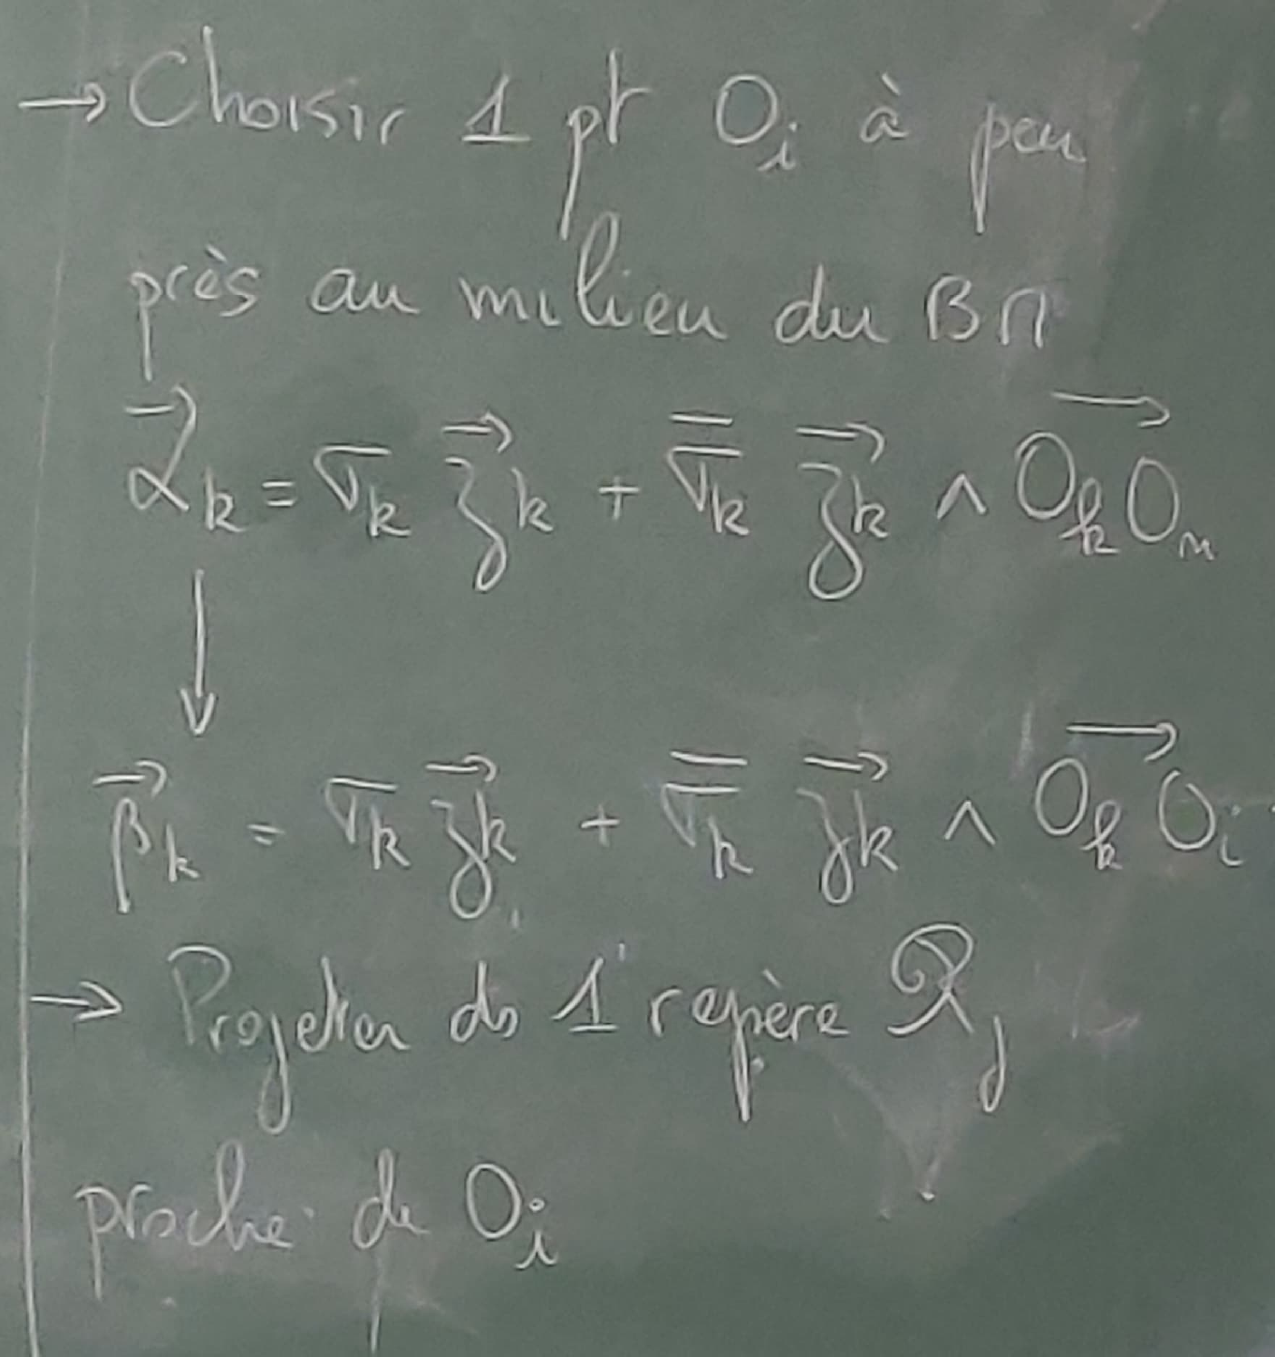 → Choisir 1 pt Oᵢ à peu
près au milieu du BM
$\vec{\alpha}_k = \sigma_k \vec{z}_k + \bar{\bar{\sigma}}_k \vec{z}_k \wedge \overrightarrow{O_k O_n}$
↓
$\vec{\beta}_k = \sigma_k \vec{z}_k + \bar{\bar{\sigma}}_k \vec{z}_k \wedge \overrightarrow{O_k O_i}$
→ Projeter ds 1 repère $\mathcal{R}_j$
proche de Oᵢ